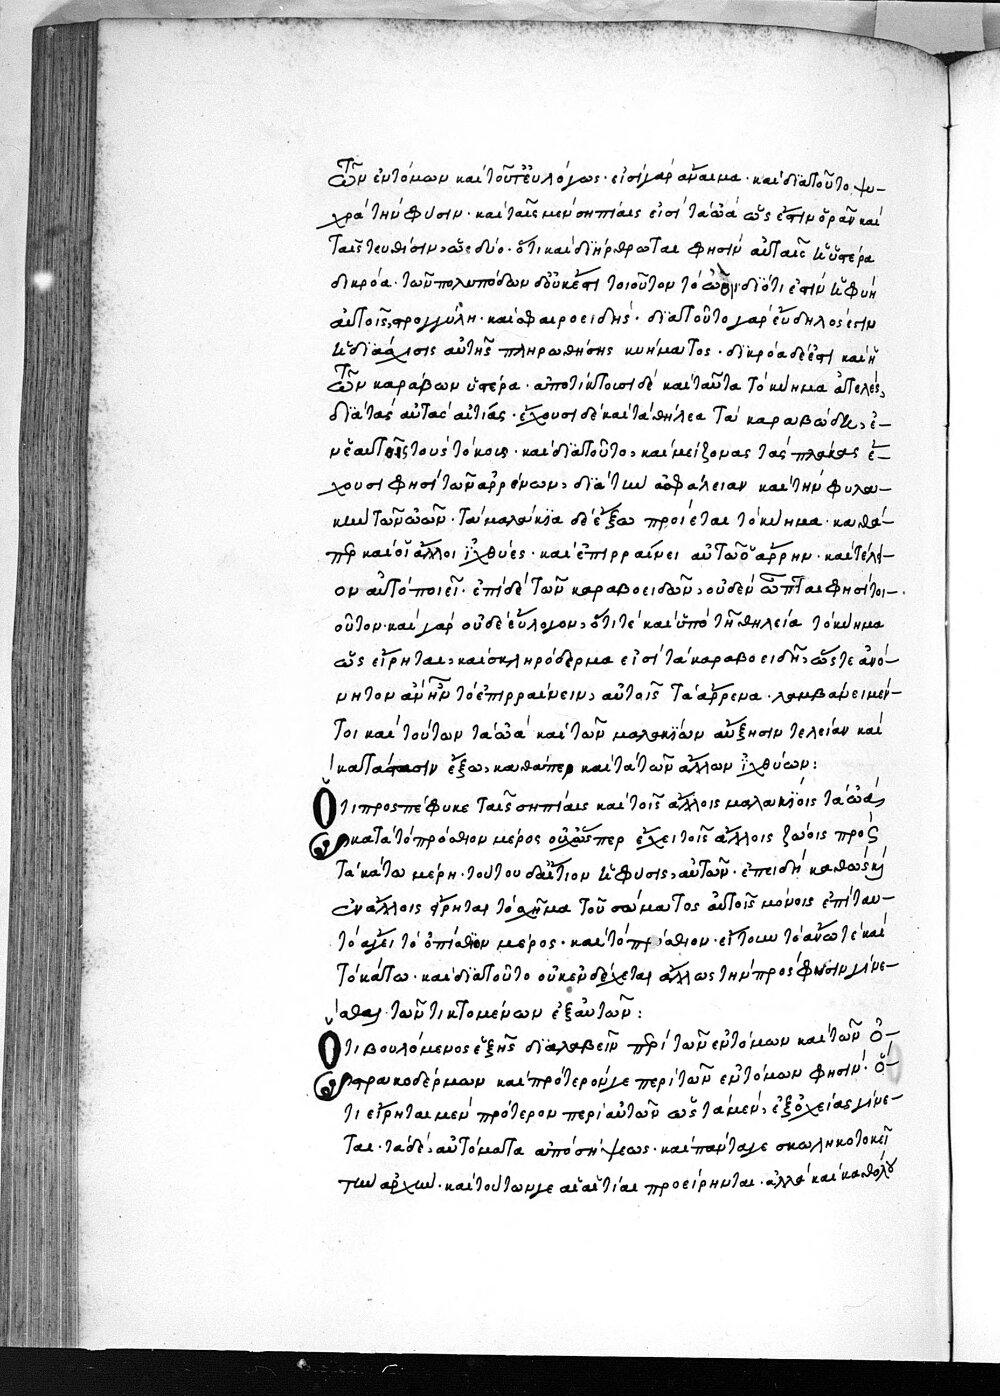 τῶν ἐντόμων καὶ τοῦτ' εὐλόγως· εἰσὶ γὰρ ἄναιμα· καὶ διὰ τοῦτο ψυ-
χρὰ τὴν φύσιν· καὶ ταῖς μὲν σηπίαις εἰσὶ τὰ ὠὰ ὥς ἐστιν ὁρᾶν καὶ
ταῖς τευθίσιν, ὡς δύο· ὅτι καὶ διήρθρωται φησὶν αὐταῖς ἡ ὑστέρα
δικρόα· τῶν πολυπόδων δ' οὐκέτι τοιοῦτον τὸ ὠὸν, διότι ἐστὶν ἡ φυὴ
αὐτοῖς στρογγύλη· καὶ σφαιροειδής· διὰ τοῦτο γὰρ εὔδηλός ἐστιν
ἡ διάσχισις αὐτῆς πληρωθήσης κυήματος· δικρόα δέ ἐστι καὶ ἡ
τῶν καράβων ὑστέρα· ἀποτίκτουσι δὲ καὶ ταῦτα τὸ κύημα ἀτελές,
διὰ τὰς αὐτὰς αἰτίας· ἔχουσι δὲ καὶ τὰ θήλεα τὰ καραβώδη, ἐ-
ν ἑαυτοῖς τοὺς τόκους· καὶ διὰ τοῦτο, καὶ μείζονας τὰς πλάκας ἔ-
χουσι φησὶ τῶν ἀρρένων, διὰ τὴν ἀσφάλειαν καὶ τὴν φυλα-
κὴν τῶν ὠῶν· τὰ μαλάκια δὲ ἔξω προΐεται τὸ κύημα· καθά-
περ καὶ οἱ ἄλλοι ἰχθύες· καὶ ἐπιρραίνει αὐτῶ ὁ ἄρρην· καὶ τέλει-
ον αὐτὸ ποιεῖ· ἐπὶ δὲ τῶν καραβοειδῶν, οὐδὲν ὦπται φησὶ τοι-
οῦτον· καὶ γὰρ οὐδὲ εὔλογον, ὅτι τὲ καὶ ὑπὸ τῆ θηλεία τὸ κύημα
ὡς εἴρηται, καὶ σκληρόδερμα εἰσὶ τὰ καραβοειδῆ, ὥστε ἀνό-
νητον ἂν ἦν τὸ ἐπιρραίνειν, αὐτοῖς τὰ ἄρρενα· λαμβάνει μέν-
τοι καὶ τούτων τὰ ὠὰ καὶ τῶν μαλακίων αὔξησιν τελείαν καὶ
κατάστασιν ἔξω, καθάπερ καὶ τὰ τῶν ἄλλων ἰχθύων:
Ὅτι προσπέφυκε ταῖς σηπίαις καὶ τοῖς ἄλλοις μαλακίοις τὰ ὠὰ,
κατὰ τὸ πρόσθιον μέρος οὐχ ὥσπερ ἔχει τοῖς ἄλλοις ζώοις πρὸς
τὰ κάτω μέρη· τούτου δ' αἴτιον ἡ φύσις, αὐτῶν· ἐπειδὴ καθὼς καὶ
ἐν ἄλλοις εἴρηται τὸ σχῆμα τοῦ σώματος αὐτοῖς μόνοις ἐπὶ ταυ-
τὸ ἄγει τὸ ὀπίσθιον μέρος· καὶ τὸ πρόσθιον· εἴτουν τὸ ἄνω τὲ καὶ
τὸ κάτω· καὶ διὰ τοῦτο οὐκ ἐνδέχεται ἄλλως τὴν πρόσφυσιν γίνε-
σθαι τῶν τικτομένων ἐξ αὐτῶν:
Ὅτι βουλόμενος ἑξῆς διαλαβεῖν περὶ τῶν ἐντόμων καὶ τῶν ὀ-
στρακοδέρμων καὶ πρότερόν γε περὶ τῶν ἐντόμων φησίν· ὅ-
τι εἴρηται μὲν πρότερον περὶ αὐτῶν ὡς τὰ μὲν, ἐξ ὀχείας γίνε-
ται· τὰ δὲ, αὐτόματα ἀπὸ σήψεως· καὶ πάντα γε σκωληκοτοκεῖ
τὴν ἀρχήν· καὶ τούτων γε αἱ αἰτίαι προείρηνται· ἀλλὰ καὶ καθόλου